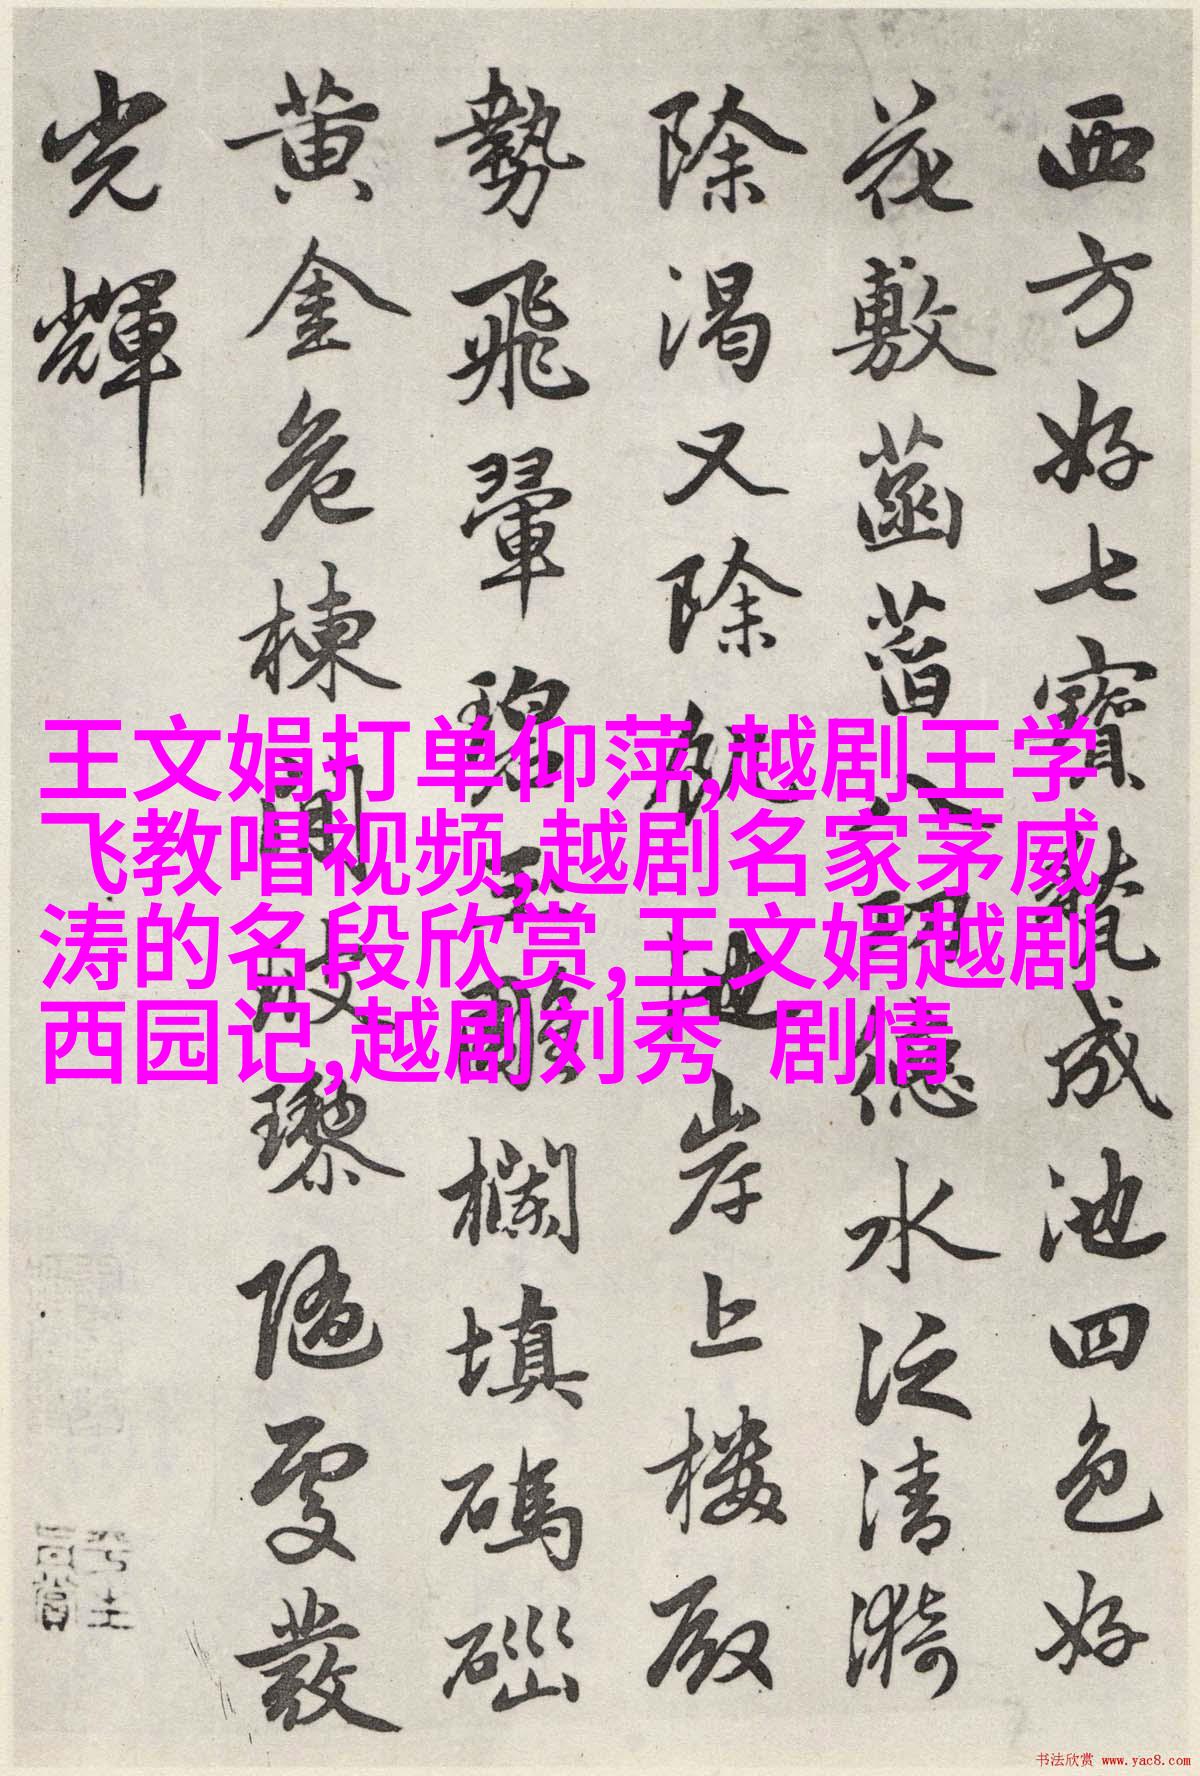 西方好七寶甃成池四色好
花敷菡萏八德水泛清漪
除渴又除飢池岸上樓殿
勢飛翬碧玉雕欄填碼碯
黃金危棟間玻瓈隨處發
光輝
王文娟打单仰萍,越剧王学
飞教唱视频,越剧名家茅威
涛的名段欣赏,王文娟越剧
西园记,越剧刘秀 剧情
书法欣赏 www.yac8.com